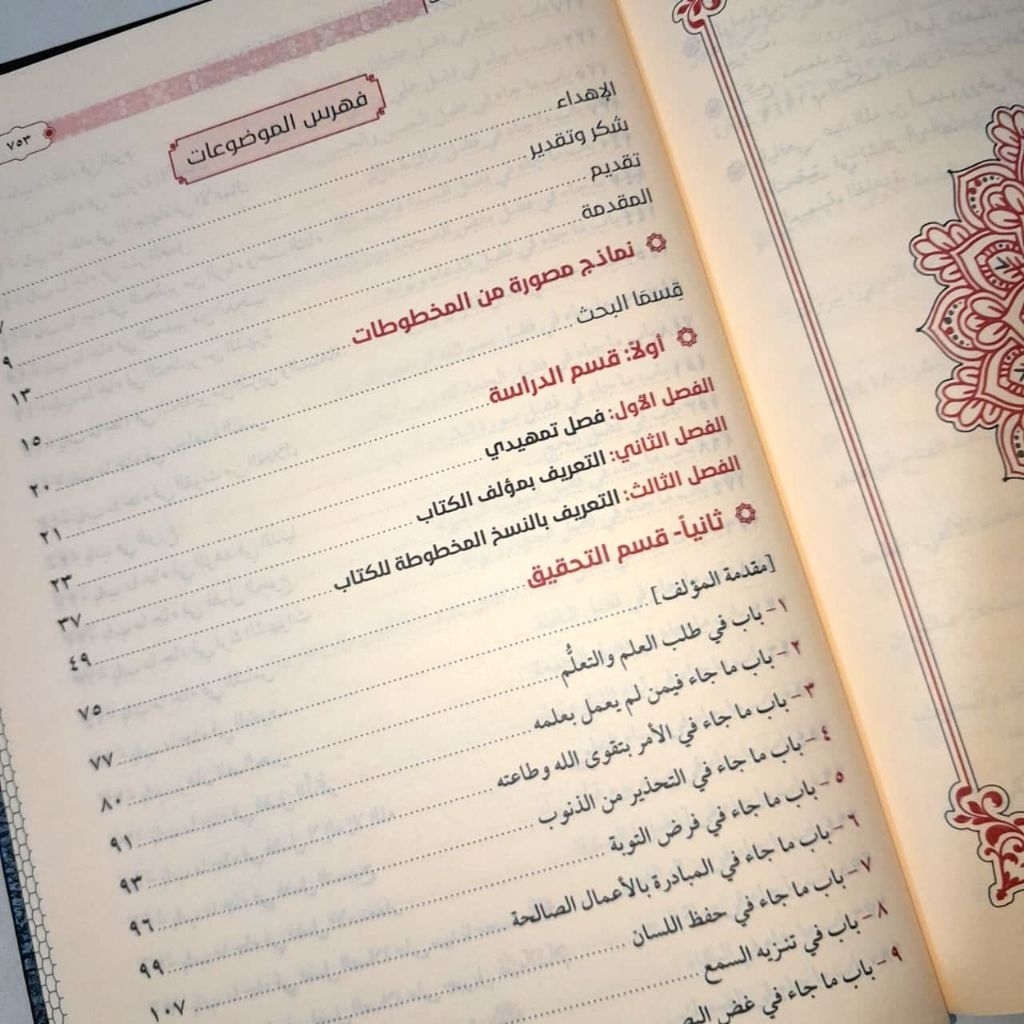 ٧٥٣
فهرس الموضوعات
الإهداء
شكر وتقدير
تقديم ٩
المقدمة ١٣
نماذج مصورة من المخطوطات ١٥
قِسمَا البحث ٢٠
أولاً: قسم الدراسة ٢١
الفصل الأول: فصل تمهيدي ٢٣
الفصل الثاني: التعريف بمؤلف الكتاب ٣٧
الفصل الثالث: التعريف بالنسخ المخطوطة للكتاب ٤٩
ثانياً- قسم التحقيق ٧٥
[مقدمة المؤلف] ٧٧
١- باب في طلب العلم والتعلُّم ٨٠
٢- باب ما جاء فيمن لم يعمل بعلمه ٩١
٣- باب ما جاء في الأمر بتقوى الله وطاعته ٩٣
٤- باب ما جاء في التحذير من الذنوب ٩٦
٥- باب ما جاء في فرض التوبة ٩٩
٦- باب ما جاء في المبادرة بالأعمال الصالحة ١٠٧
٧- باب ما جاء في حفظ اللسان
٨- باب في تنزيه السمع
٩- باب ما جاء في غض